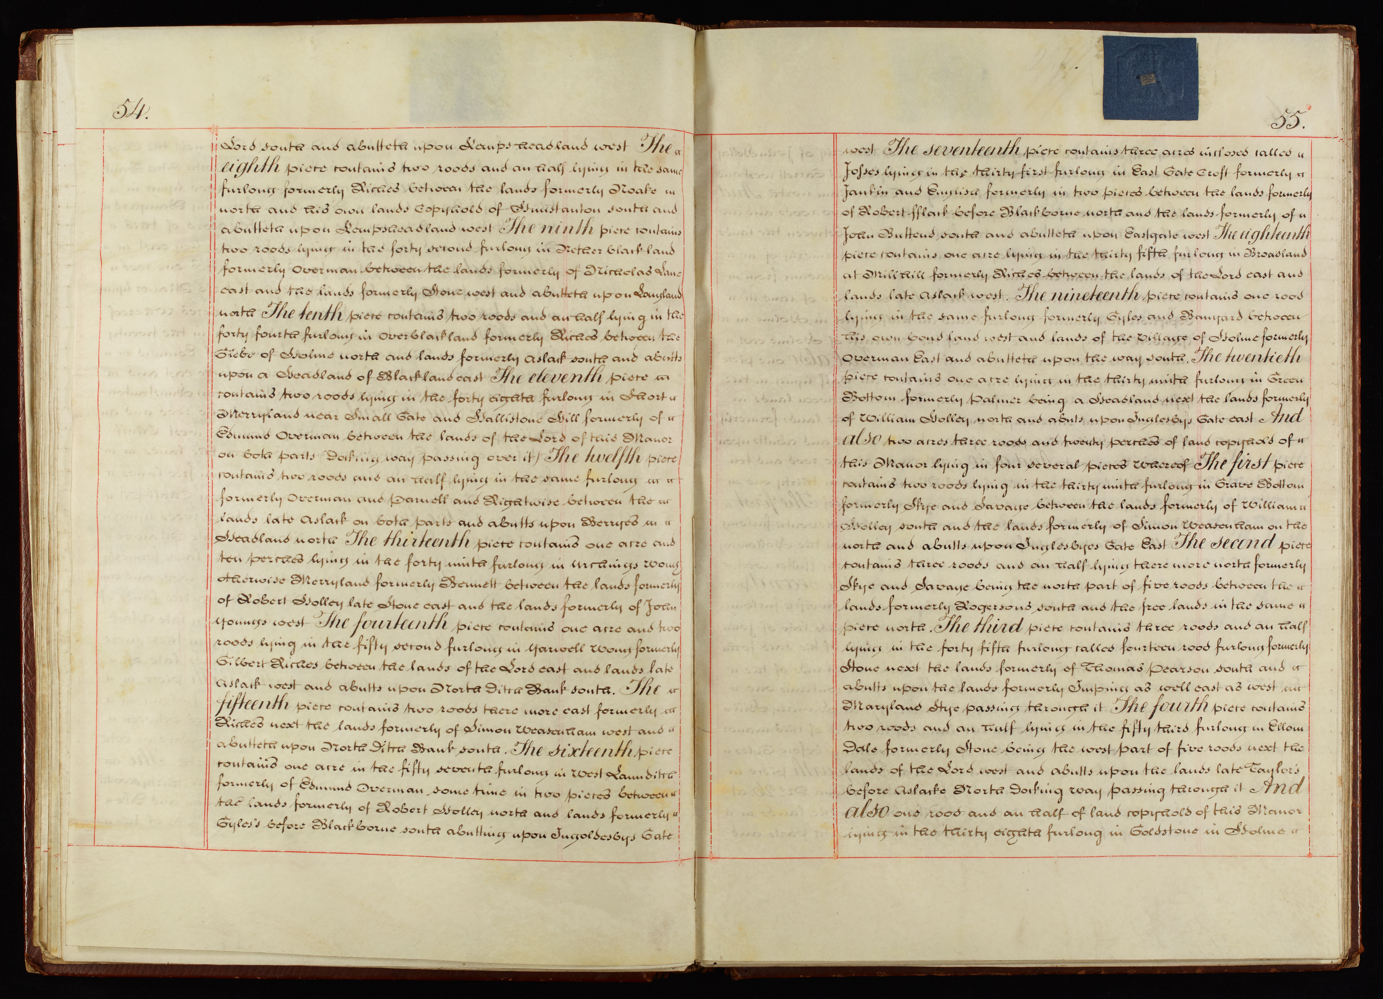 54.
Lord south and abutteth upon Lamps headland west The
eighth piece contains two roods and an half lying in the same
furlong formerly Riches between the lands formerly Noake
north and his own lands Copyhold of Hunstanton south and
abutteth upon Lampsheadland west The ninth piece contains
two roods lying in the forty second furlong in Nether blackland
formerly Overman between the lands formerly of Nicholas Lane
east and the lands formerly Stone west and abutteth upon Longland
north The tenth piece contains two roods and an half lying in the
forty fourth furlong in Overblackland formerly Riches between the
Glebe of Holme north and lands formerly Aslack south and abutts
upon a Headland of Blackland east The eleventh piece
contains two roods lying in the forty eighth furlong in Short
Merryland near Small Gate and Gallistone Hill formerly of
Edmund Overman between the lands of the Lord of this Manor
on both parts (Docking way passing over it) The twelfth piece
contains two roods and an half lying in the same furlong
formerly Overman and Parnell and Rightwise between the
lands late Aslack on both parts and abutts upon Berryes
Headland north The thirteenth piece contains one acre and
ten perches lying in the forty ninth furlong in Urchings Wong
otherwise Merryland formerly Bennett between the lands formerly
of Robert Holley late Stone east and the lands formerly of John
Youngs west The fourteenth piece contains one acre and two
roods lying in the fifty second furlong in Yarwell Wong formerly
Gilbert Riches between the lands of the Lord east and lands late
Aslack west and abutts upon North Ditch Bank south. The
fifteenth piece contains two roods there more east formerly
Riches next the lands formerly of Simon Weasenham west and
abutteth upon North Ditch Bank south. The sixteenth piece
contains one acre in the fifty seventh furlong in West Launditch
formerly of Edmund Overman some time in two pieces between
the lands formerly of Robert Holley north and lands formerly
Gyles's before Blackborne south abutting upon Ingoldesbys Gate
55.
west The seventeenth piece contains three acres inclosed called
Josses lying in the thirty first furlong in East Gate Croft formerly
Jankin and English formerly in two pieces between the lands formerly
of Robert fflack before Blackborne north and the lands formerly of
John Buttend south and abutteth upon Eastgate west The eighteenth
piece contains one acre lying in the thirty fifth furlong in Broadland
at Millhill formerly Riches between the lands of the Lord east and
lands late Aslack west. The nineteenth piece contains one rood
lying in the same furlong formerly Gyles and Banyard between
his own bond land west and lands of the Village of Holme formerly
Overman East and abutteth upon the way south. The twentieth
piece contains one acre lying in the thirty ninth furlong in Green
Bottom formerly Palmer being a Headland next the lands formerly
of William Holley north and abuts upon Inglesbys Gate east And
also two acres three roods and twenty perches of land copyhold of
this Manor lying in four several pieces Whereof The first piece
contains two roods lying in the thirty ninth furlong in Grave Bottom
formerly Skye and Savage between the lands formerly of William
Holley south and the lands formerly of Simon Weasenham on the
north and abutts upon Inglesbyes Gate East The second piece
contains three roods and an half lying there more north formerly
Skye and Savage being the north part of five roods between the
lands formerly Rogersons south and the free lands in the same
piece north. The third piece contains three roods and an half
lying in the forty fifth furlong called fourteen rood furlong formerly
Stone next the lands formerly of Thomas Pearson south and
abutts upon the lands formerly Imping as well east as west
Maryland Stye passing through it The fourth piece contains
two roods and an half lying in the fifty third furlong in Ellom
Dale formerly Stone being the west part of five roods next the
lands of the Lord west and abutts upon the lands late Taylor's
before Aslacke North Docking way passing through it And
also one rood and an half of land copyhold of this Manor
lying in the thirty eighth furlong in Goldstone in Holme